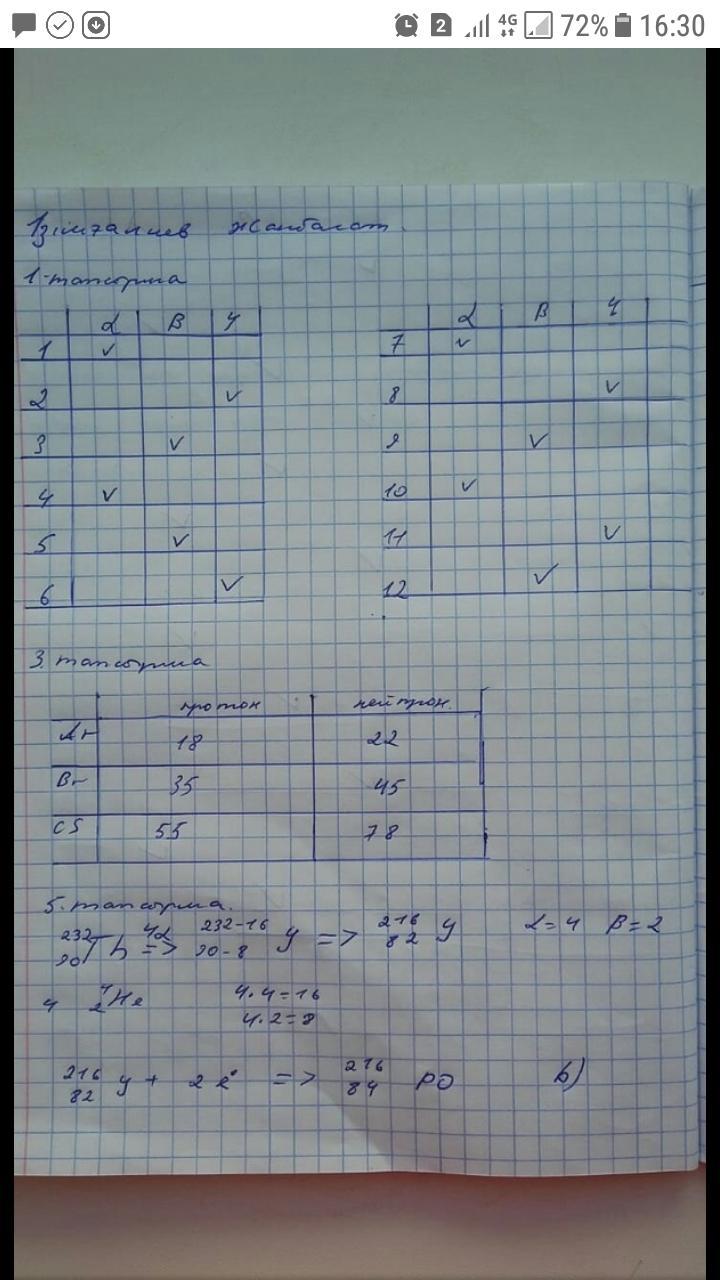 2 4G 72% 16:30
Жанболат.
1-тапсырма
α β γ
1 ✓
2 ✓
3 ✓
4 ✓
5 ✓
6 ✓
α β γ
7 ✓
8 ✓
9 ✓
10 ✓
11 ✓
12 ✓
3. тапсырма
протон нейтрон.
Ar 18 22
Br 35 45
CS 55 78
5. тапсырма.
²³²₉₀Th 4α => ²³²⁻¹⁶₉₀₋₈ y => ²¹⁶₈₂ y α=4 β=2
4 ⁴₂He 4·4=16
4·2=8
²¹⁶₈₂ y + 2e⁻ => ²¹⁶₈₄ PO b)